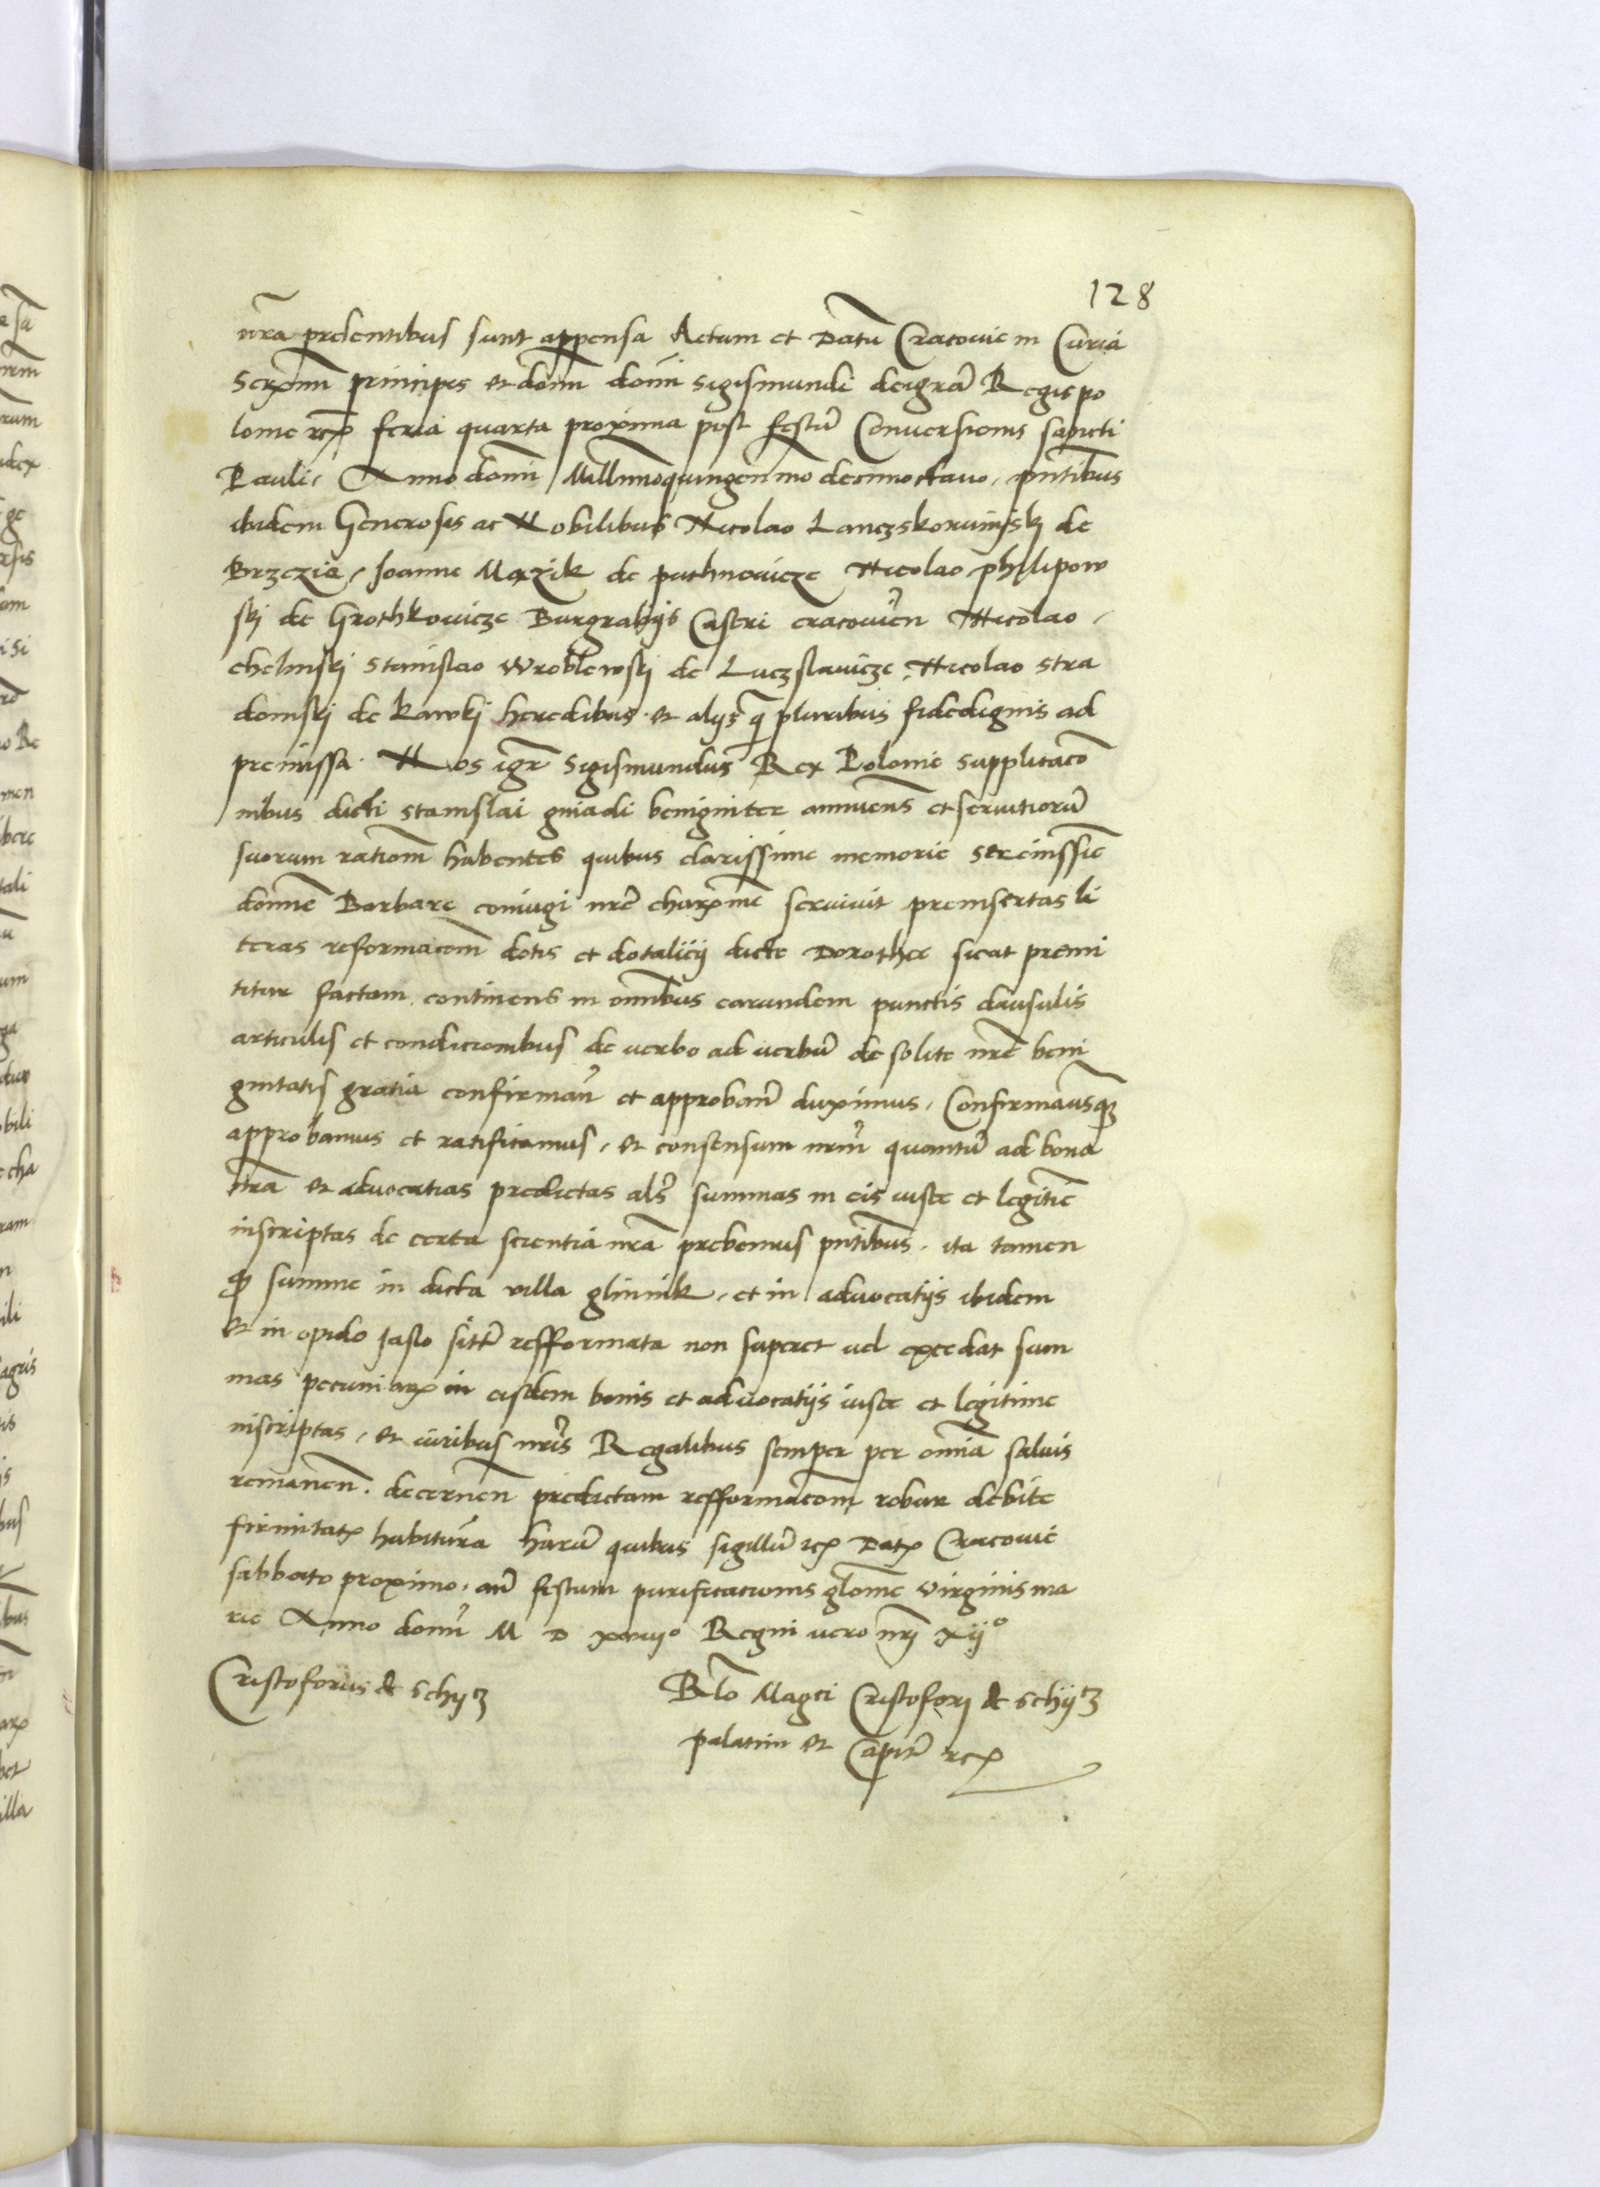 128
nrã presentibus sunt appensa Actum et Datũ Cracovie in Curia
Serximi principis et domĩ domĩ Sigismundi deigrã Regis po
lonie rex feria quarta proxima post festũ Conversionis sancti
Pauli, Anno domĩ Millimoquingenmo decimooctavo, pñtibus
ibidem Generosis ac Nobilibus Nicolao Lanczskoruniski de
Brzezia, Joanne Maxik de puthnowicze Nicolao philipow
ski de Grothkowicze Burgrabijs Castri cracovieñ Nicolao,
chelmski Stanislao Wroblewski de Luczslavicze, Nicolao stra
domski de kawki heredibus et alijs q pluribus fidedignis ad
premissa. Nos igr Sigismundus Rex Polonie supplicacõ
nibus dicti Stanislai gniadi benigniter annuens et servitiorũ
suorum rationẽ habentes quibus clarissime memorie Serenissiẽ
domne Barbare coniugi nrẽ charxme servivit preinsertas li
teras reformacionẽ dotis et dotalicij dicte Dorothee sicut premi
titur factam continens in omnibus earundem punctis clausulis
articulis et condicionibus de verbo ad verbũ de solite nrẽ beni
gnitatis gratia confirmañ et approbañ duximus, Confirmamusq
approbamus et ratificamus, et consensum nrm̃ quantũ ad bona
nrã et advocatias predictas als summas in eis iuste et legitiẽ
inscriptas de certa scientia nrã prebemus pñtibus. ita tamen
q summe in dicta villa glinnik, et in advocatijs ibidem
et in opido Jaslo sitt refformata non superet vel excedat sum
mas pecuniarx in eisdem bonis et advocatijs iuste et legitime
inscriptas, et iuribus nrĩs Regalibus semper per omnĩa salvis
remaneñ. decerneñ predictam refformacõm robur debite
firmitatx habiturã harũ quibus sigillũ rex Datx Cracovie
sabbato proximo, añ festum purificacionis glõse virginis ma
rie Anno domĩ M D xviijº Regni vero nrĩ xijº
Cristoforus de Schijdl
Relõ Magci Cristoferi de Schijdl
palatini et Capit rex